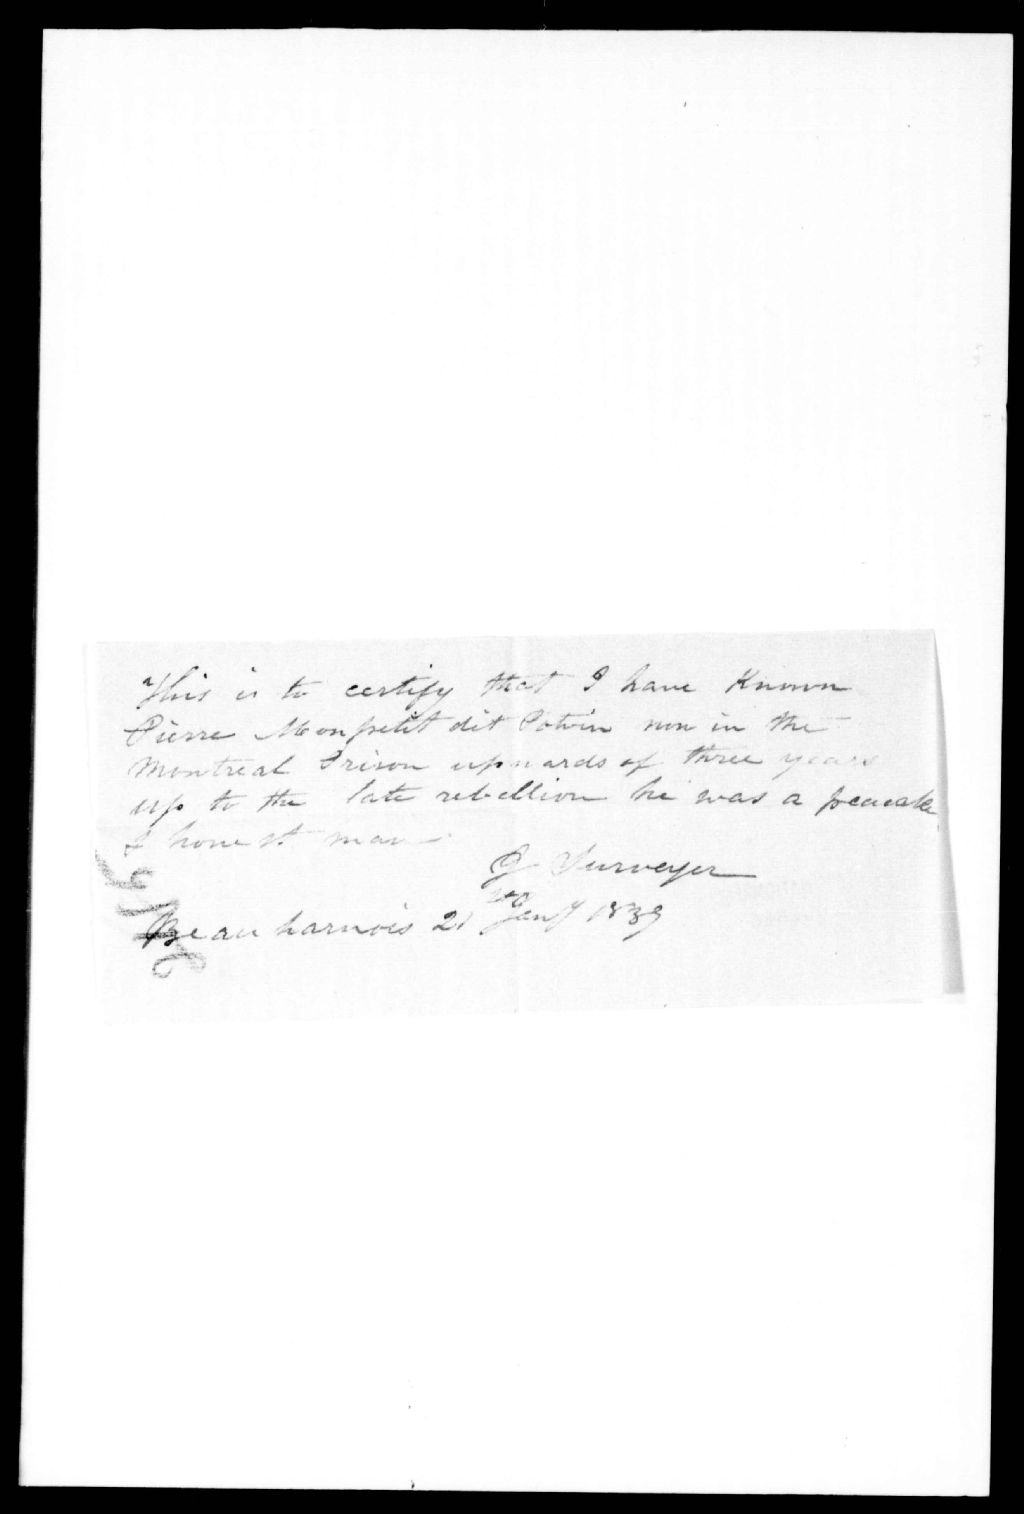 This is to certify that I have Known
Pierre Monpetit dit Potvin now in the
Montreal Prison upwards of three years
up to the late rebellion he was a peaceable
& honest man
J Surveyer
Beauharnois 21 Jany 1839